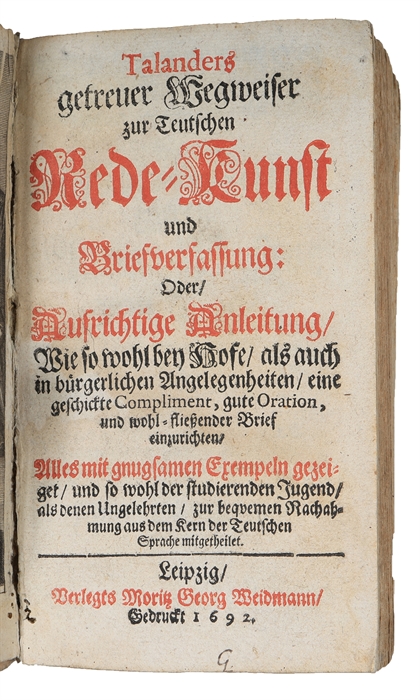 Talanders
getreuer Wegweiser
zur Teutschen
Rede-Kunst
und
Briefverfassung:
Oder/
Aufrichtige Anleitung/
Wie so wohl bey Hofe/ als auch
in bürgerlichen Angelegenheiten/ eine
geschickte Compliment, gute Oration,
und wohl-fließender Brief
einzurichten/
Alles mit gnugsamen Exempeln gezei-
get/ und so wohl der studierenden Jugend/
als denen Ungelehrten/ zur beqvemen Nachah-
mung aus dem Kern der Teutschen
Sprache mitgetheilet.
Leipzig/
Verlegts Moritz Georg Weidmann/
Gedruckt 1692.